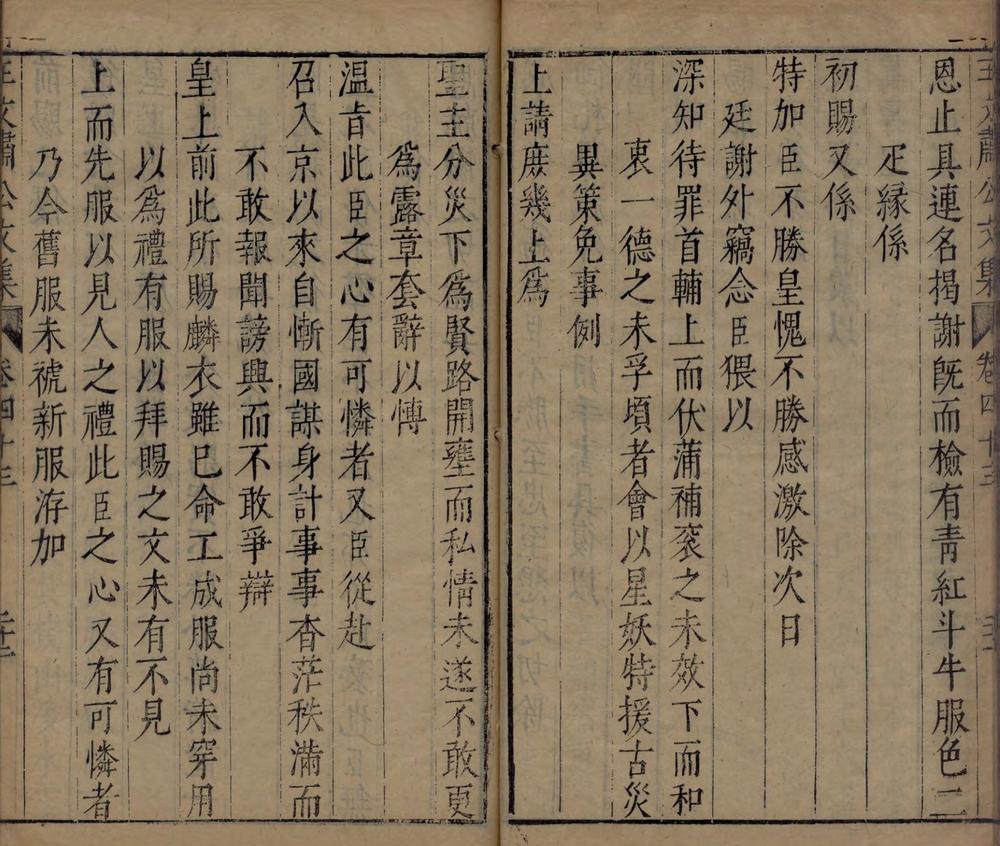 恩止具連名揭謝旣而檢有青紅斗牛服色二
疋縁係
初賜又係
特加臣不勝皇愧不勝感激除次日
廷謝外竊念臣猥以
深知待罪首輔上而伏蒲補衮之未效下而和
衷一德之未孚頃者會以星妖特援古災
異策免事例
上請庻幾上爲
聖主分災下爲賢路開壅而私情未遂不敢更
爲露章套辭以慱
温㫖此臣之心有可憐者又臣從赴
召入京以來自慚國謀身計事事杳茫秩滿而
不敢報聞謗興而不敢爭辯
皇上前此所賜麟衣雖已命工成服尚未穿用
以爲禮有服以拜賜之文未有不見
上而先服以見人之禮此臣之心又有可憐者
乃今舊服未褫新服洊加
王文肅公文集
卷四十三